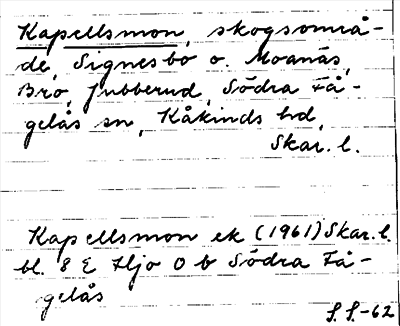 Kapellsmon, skogsområ-
de, Signesbo o. Moanäs,
Bro, Jubberud, Södra Få-
gelås sn, Kåkinds hd,
Skar. l.
Kapellsmon ek (1961) Skar. l.
bl. 8 E Hjo O b Södra Få-
gelås
S. S.-62